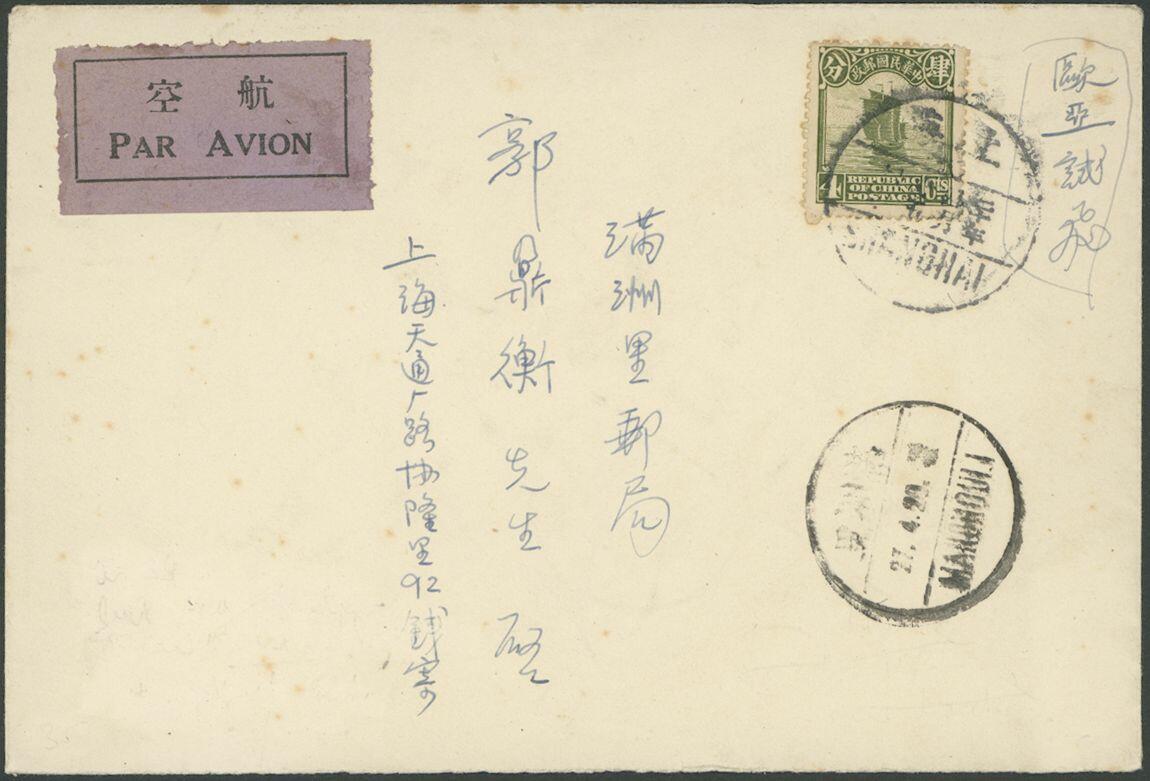 航空
PAR AVION
中華民國郵政
肆分
4 Cts
REPUBLIC
OF CHINA
POSTAGE
上海
SHANGHAI
歐亞試飛
滿洲里郵局
郭鼎衡先生 啓
上海天通广路协隆里92錢寄
27.4.20.
MANCHOULI